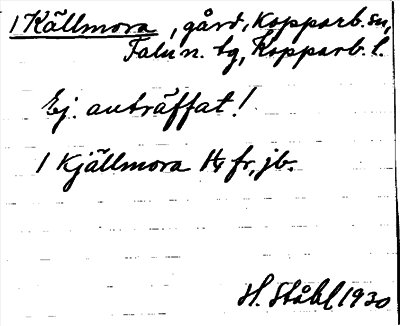 1 Källmora, gård, Kopparb. sn,
Falun. tg, Kopparb. l.
Ej. anträffat!
1 Kjällmora Hg fr, jb.
H. Ståhl 1930